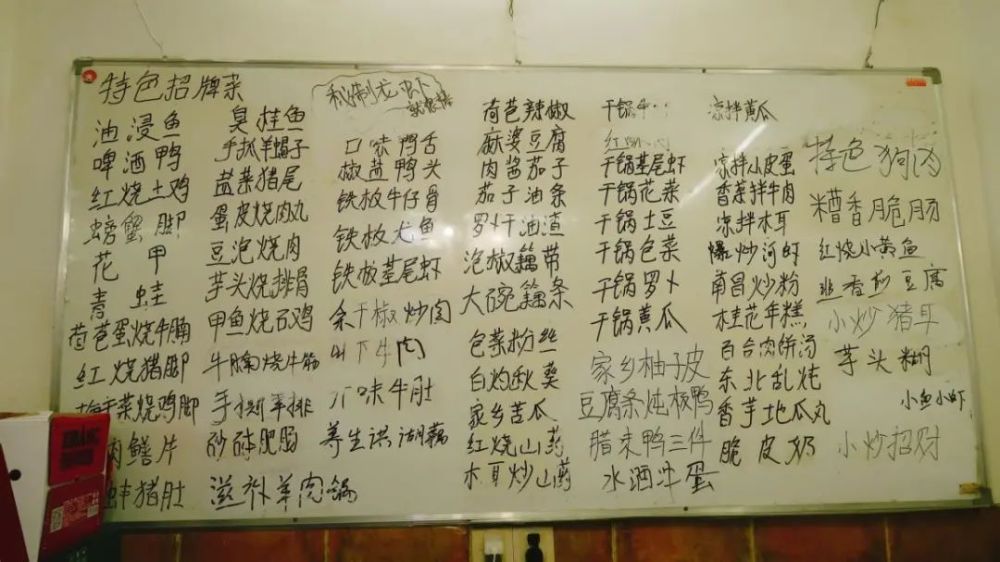 特色招牌菜
油浸鱼
啤酒鸭
红烧土鸡
螃蟹脚
花甲
青蛙
茼芭蛋烧牛腩
红烧猪脚
菜烧鸡脚
鳝片
猪肚
臭挂鱼
手抓羊蝎子
盐菜猪尾
蛋皮烧肉丸
豆泡烧肉
芋头烧排骨
甲鱼烧石鸡
牛腩烧牛筋
手撕羊排
砂钵肥肠
滋补羊肉锅
秘制龙虾
口味鸭舌
椒盐鸭头
铁板牛仔骨
铁板尤鱼
铁板基尾虾
余干椒炒肉
牛肉
味牛肚
养生洪湖藕
荷芭辣椒
麻婆豆腐
肉酱茄子
茄子油条
罗卜干油渣
泡椒藕带
大碗藕条
包菜粉丝
白灼秋葵
家乡苦瓜
红烧山药
木耳炒山药
干锅牛
红
干锅基尾虾
干锅花菜
干锅土豆
干锅包菜
干锅罗卜
干锅黄瓜
家乡柚子皮
豆腐条炖板鸭
腊未鸭三件
水酒冲蛋
凉拌黄瓜
凉拌小皮蛋
香菜拌牛肉
凉拌木耳
爆炒河虾
南昌炒粉
桂花年糕
百合肉饼汤
东北乱炖
香芋地瓜丸
脆皮奶
特色狗肉
糟香脆肠
红烧小黄鱼
韭香炒豆腐
小炒猪耳
芋头糊
小鱼小虾
小炒招财